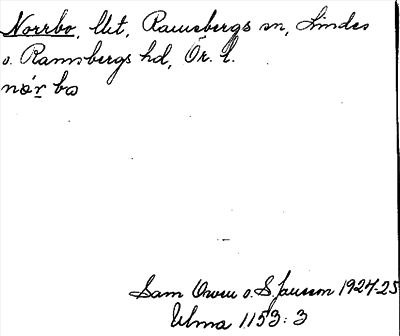 Norrbo, lht, Ramsbergs sn, Lindes
o. Ramsbergs hd, Ör. l.
Sam Owen o. S. Janson 1924-25
Ulma 1153: 3